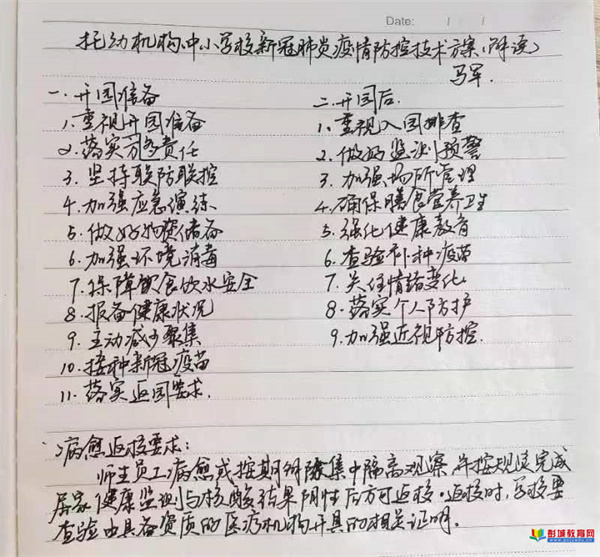 Date: / /
托幼机构、中小学校新冠肺炎疫情防控技术方案(解读)
马军.
一. 开园准备
1. 重视开园准备
2. 落实四方责任
3. 坚持联防联控
4. 加强应急演练
5. 做好物资储备
6. 加强环境消毒
7. 保障饮食饮水安全
8. 报备健康状况
9. 互动减少聚集
10. 接种新冠疫苗
11. 落实返园要求.
二. 开园后.
1. 重视入园排查
2. 做好监测预警
3. 加强场所管理
4. 确保膳食营养卫生
5. 强化健康教育
6. 查验补种疫苗
7. 关注情绪变化
8. 落实个人防护
9. 加强近视防控.
病愈返校要求:
师生员工病愈或按期解除集中隔离观察,并按规定完成
居家健康监测与核酸结果阴性后方可返校。返校时,学校要
查验由具备资质的医疗机构开具的相关证明。
彭城教育网